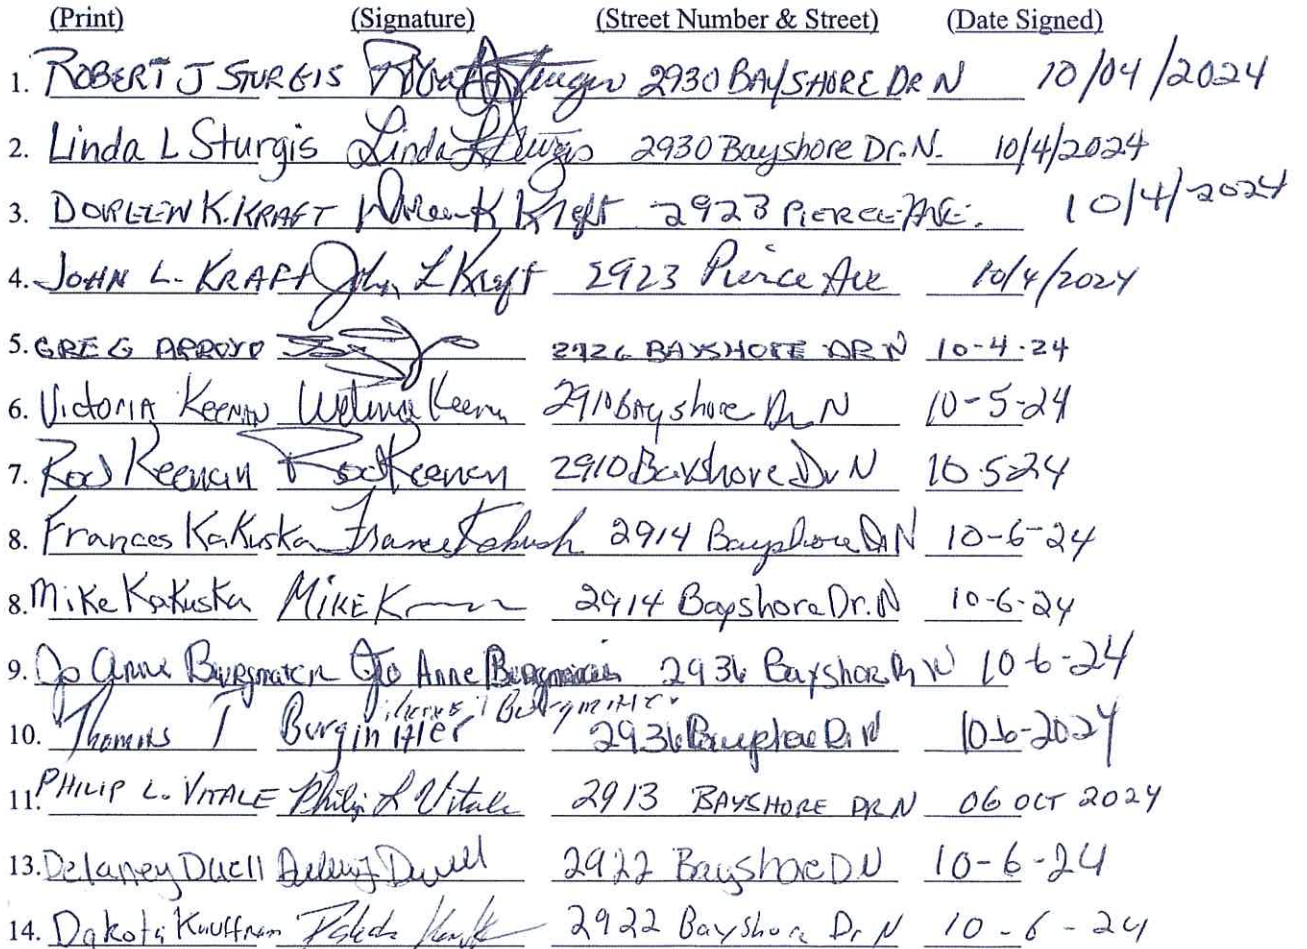 (Print) (Signature) (Street Number & Street) (Date Signed)
1. ROBERT J STURGIS 2930 BAYSHORE DR N 10/04/2024
2. Linda L Sturgis Linda L Sturgis 2930 Bayshore Dr. N. 10/4/2024
3. DOREEN K. KRAFT Doreen K Kraft 2923 PIERCE AVE. 10/4/2024
4. JOHN L. KRAFT John L Kraft 2923 Pierce Ave 10/4/2024
5. GREG ARROYO 2926 BAYSHORE DR N 10-4-24
6. Victoria Keenan Keenan 2910 Bayshore Dr N 10-5-24
7. Rod Keenan Rod Keenan 2910 Bayshore Dr N 10-5-24
8. Frances Kakuska Frances Kakuska 2914 Bayshore Dr N 10-6-24
8. Mike Kakuska MIKE K 2914 Bayshore Dr. N 10-6-24
9. Jo Anne Jo Anne 2936 Bayshore Dr N 10-6-24
10. Thomas T 2936 Bayshore Dr N 10-6-2024
11. PHILIP L. VITALE Philip L Vitale 2913 BAYSHORE DR N 06 OCT 2024
13. Delaney Duell 2922 Bayshore D N 10-6-24
14. Dakota Kauffman 2922 Bayshore Dr N 10-6-24